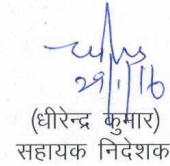 29/1/16
(धीरेन्द्र कुमार)
सहायक निदेशक